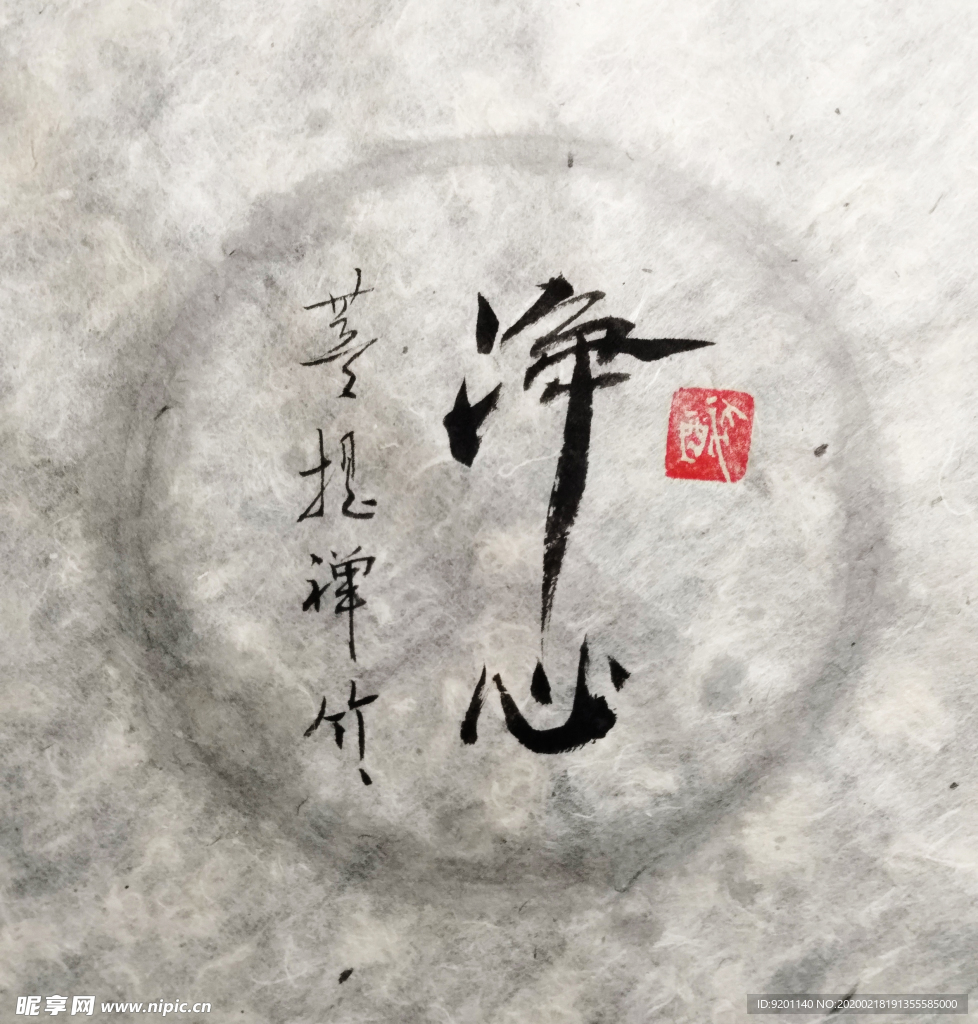 净心
菩提禅竹
昵享网 www.nipic.cn
ID:9201140 NO:20200218191355585000